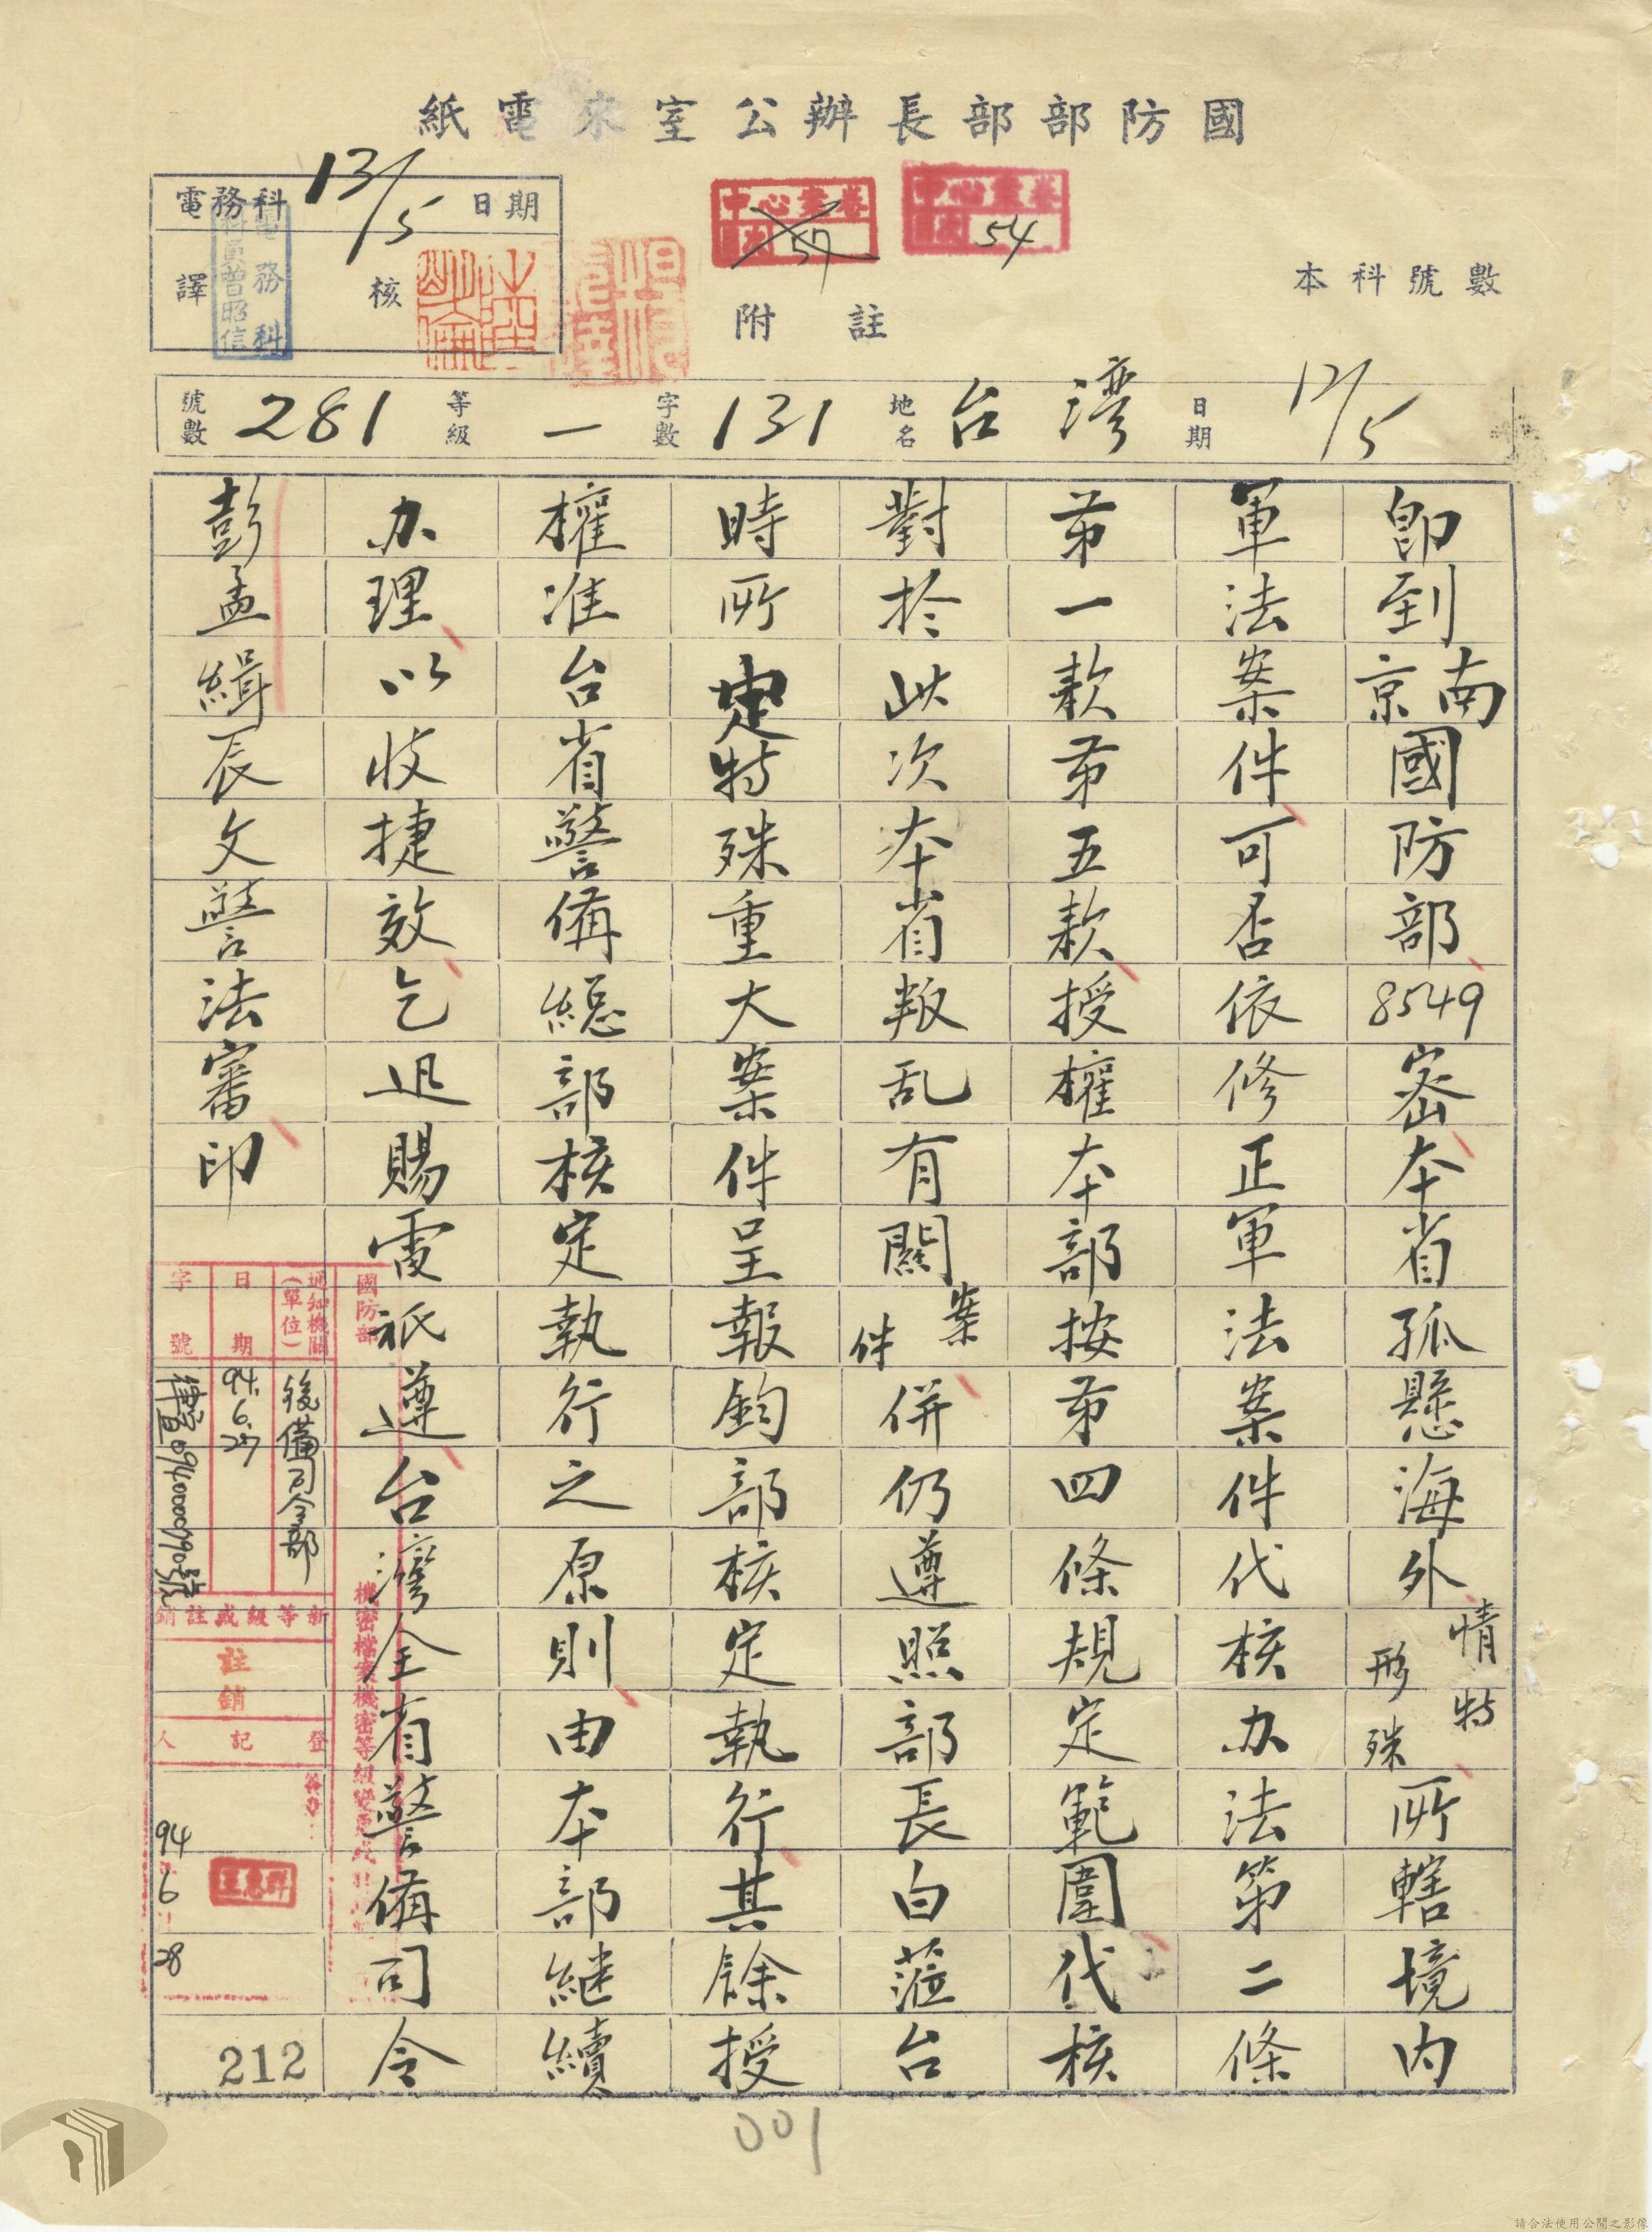 國防部部長辦公室來電紙
電務科
13/5
日期
譯
核
電務科
科員曾昭信
中心案卷
57
中心案卷
54
附註
本科號數
號數 281 等級 一 字數 131 地名 台灣 日期 12/5
即到南京國防部8549密本省孤懸海外情形特殊所轄境內
軍法案件可否依修正軍法案件代核办法第二條
第一款第五款授權本部按第四條規定範圍代核
對於此次本省叛乱有關案件併仍遵照部長白蒞台
時所定特殊重大案件呈報鈞部核定執行其餘授
權准台省警備總部核定執行之原則由本部継續
办理以收捷效乞迅賜電祇遵台灣全省警備司令
彭孟緝辰文警法審印
國防部
機密檔案機密等級變更或註
通知機關(單位)
後備司令部
日期
94.6.27
字號
0940000990號
新等級或註銷
註銷
登記人
94
6
28
212
001
請合法使用公開之影像